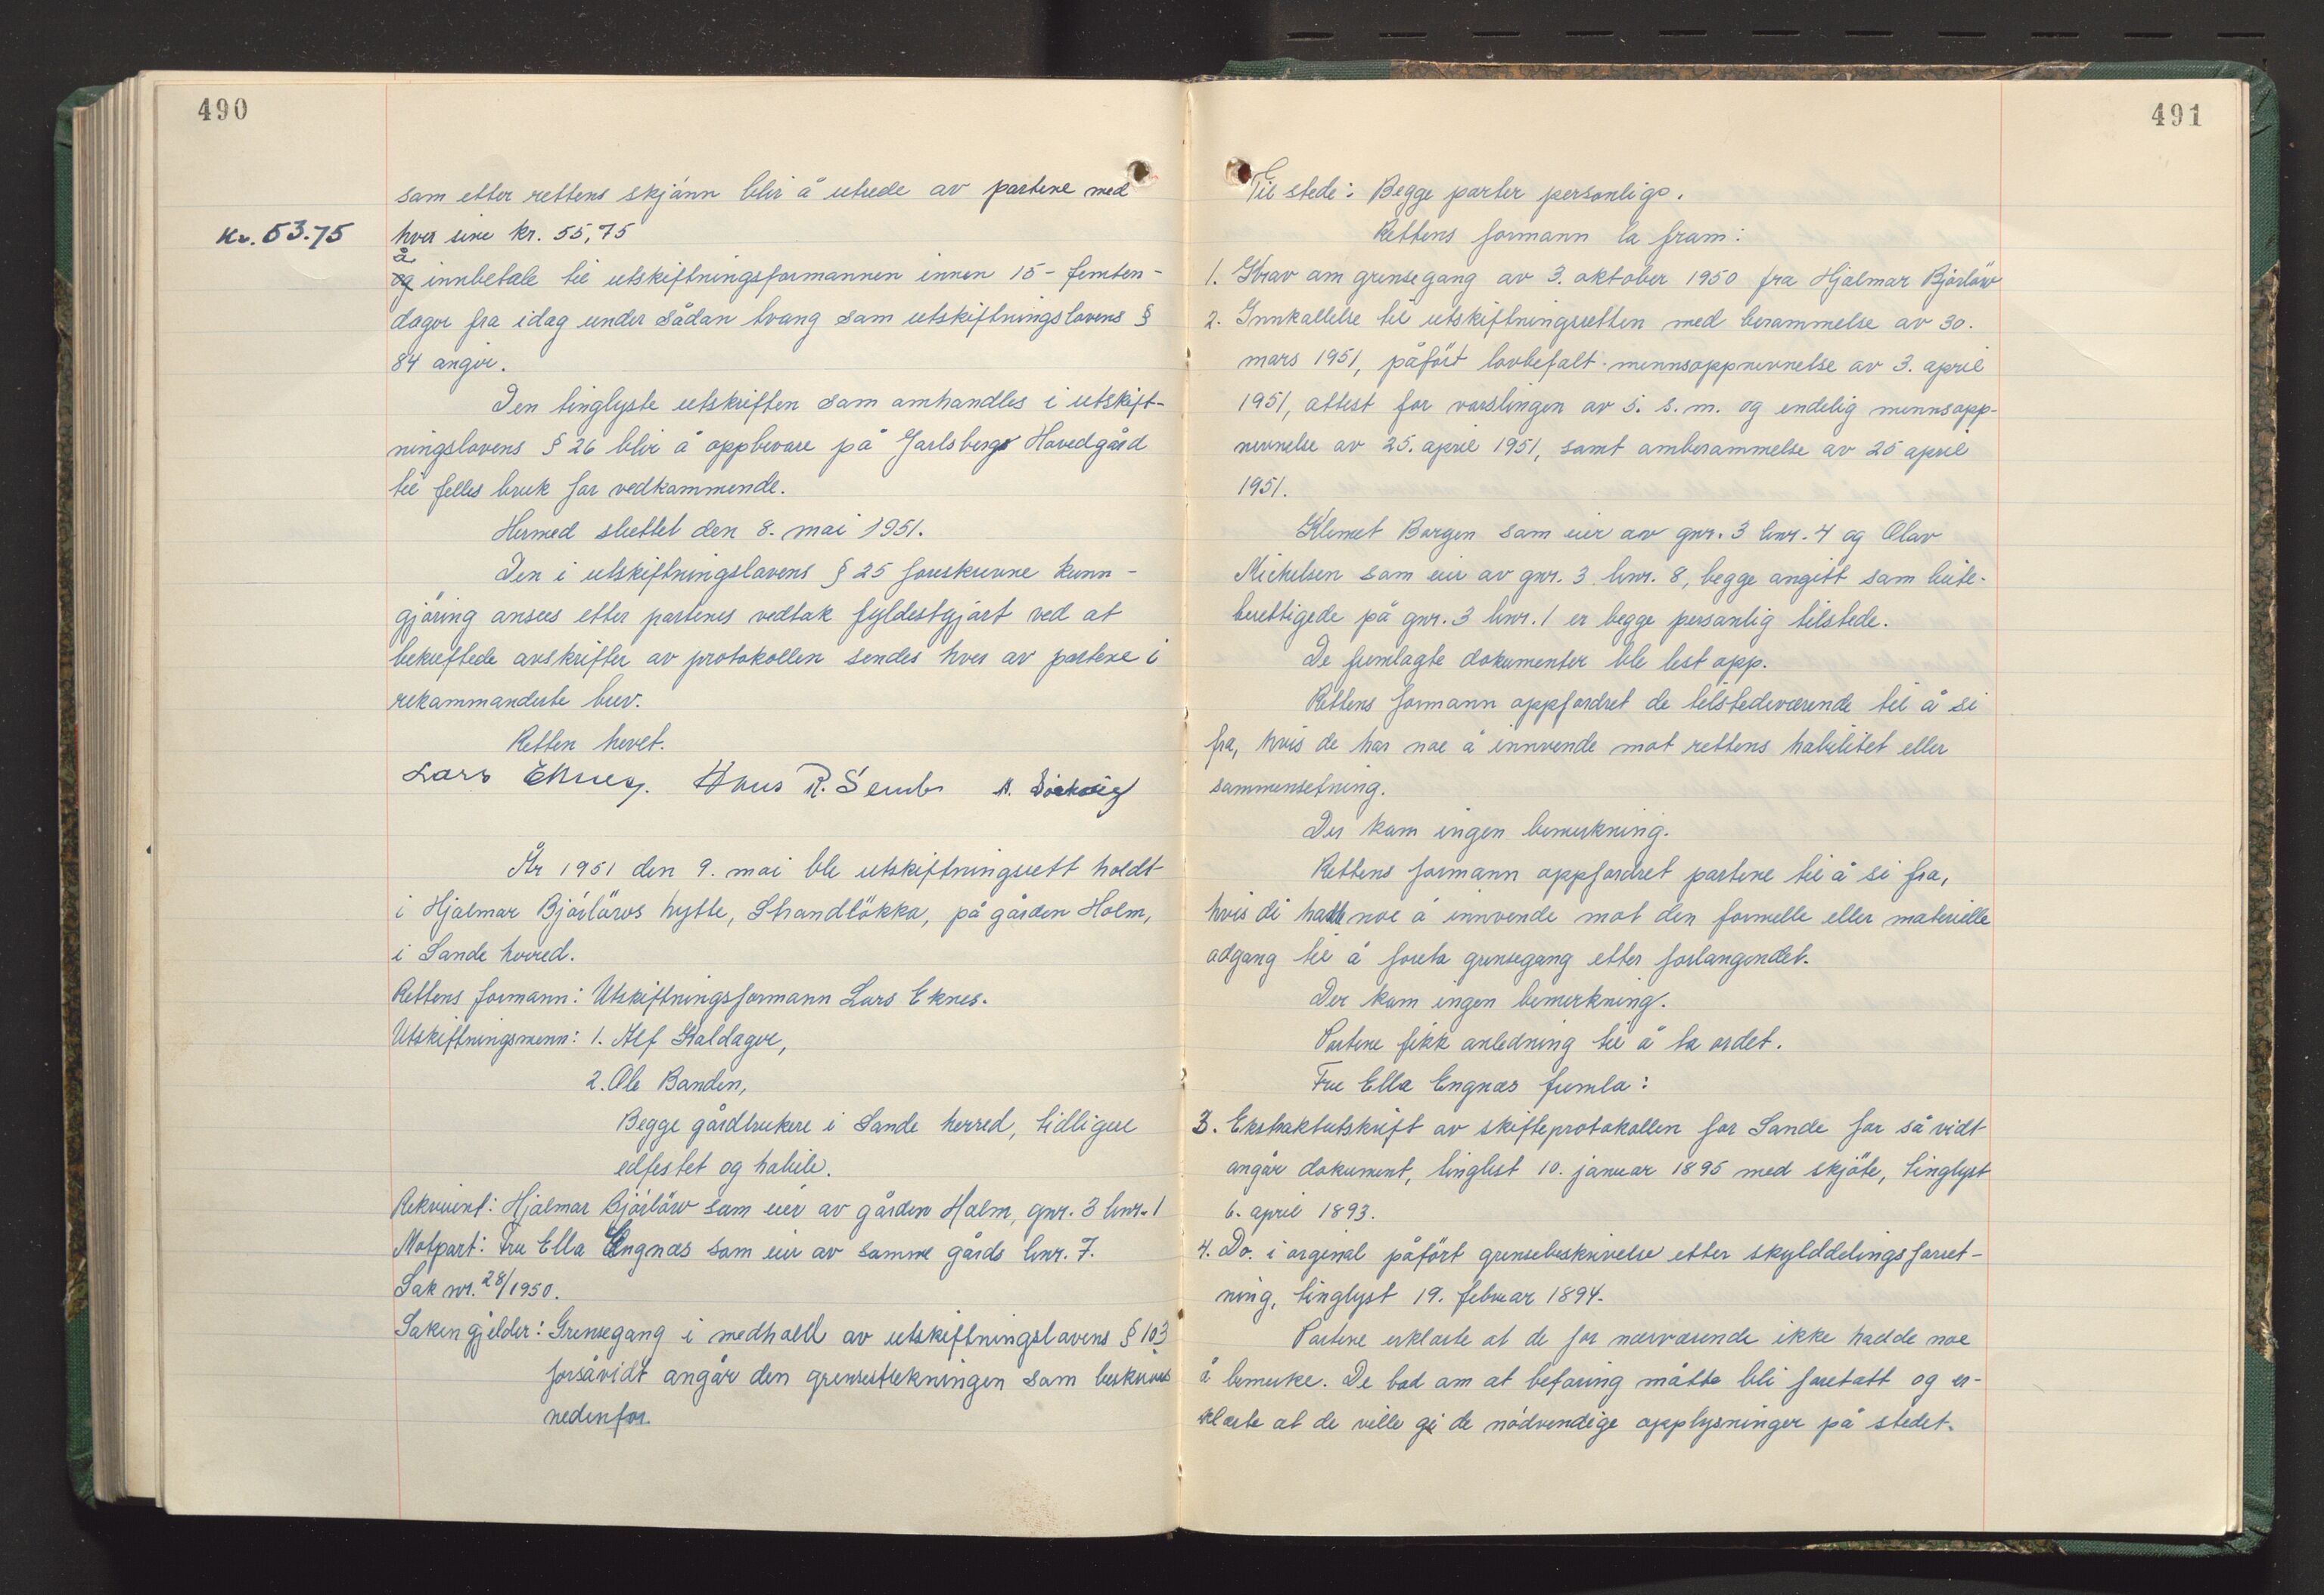 490
som etter rettens skjönn blir å utrede av partene med
Kr. 53.75
hver sine kr. 55,75
å
og innbetale til utskiftningsformannen innen 15 - femten -
dager fra idag under sådan tvang som utskiftningslovens §
84 angir.
Den tinglyste utskriften som omhandles i utskift-
ningslovens § 26 blir å oppbevare på Jarlsberg Hovedgård
til felles bruk for vedkommende.
Hermed sluttet den 8. mai 1951.
Den i utskiftningslovens § 25 foreskrevne kunn-
gjöring ansees etter partenes vedtak fyldestgjort ved at
bekreftede avskrifter av protokollen sendes hver av partene i
rekommanderte brev.
Retten hevet.
Lars Eknes. Hans R. Semb
År 1951 den 9. mai ble utskiftningsrett holdt
i Hjalmar Björlöws hytte, Strandlökka, på gården Holm,
i Sande herred.
Rettens formann: Utskiftningsformann Lars Eknes.
Utskiftningsmenn: 1. Alf Haldager,
2. Ole Banden,
Begge gårdbrukere i Sande herred, tidligere
edfestet og habile.
Rekvirent: Hjalmar Björlöw som eier av gården Holm, gnr. 3 bnr. 1
Motpart: Fru Ella Engnæs som eier av samme gårds bnr. 7.
Sak nr. 28/1950.
Saken gjelder: Grensegang i medhold av utskiftningslovens § 103
forsåvidt angår den grensestrekningen som beskrives
nedenfor.
491
Til stede: Begge parter personlig.
Rettens formann la fram:
1. Krav om grensegang av 3. oktober 1950 fra Hjalmar Björlöw
2. Innkallelse til utskiftningsretten med berammelse av 30.
mars 1951, påfört lovbefalt mennsoppnevnelse av 3. april
1951, attest for varslingen av 5. s. m. og endelig mennsopp-
nevnelse av 25. april 1951, samt omberammelse av 25 april
1951.
Klemet Bergen som eier av gnr. 3 bnr. 4 og Olav
Mickelsen som eier av gnr. 3 bnr. 8, begge angitt som beite-
berettigede på gnr. 3 bnr. 1 er begge personlig tilstede.
De fremlagte dokumenter ble lest opp.
Rettens formann oppfordret de tilstedeværende til å si
fra, hvis de har noe å innvende mot rettens habilitet eller
sammensetning.
Der kom ingen bemerkning.
Rettens formann oppfordret partene til å si fra,
hvis di hadde noe å innvende mot den formelle eller materielle
adgang til å foreta grensegang etter forlangendet.
Der kom ingen bemerkning.
Partene fikk anledning til å ta ordet.
Fru Ella Engnæs fremla:
3. Ekstraktutskrift av skifteprotokollen for Sande for så vidt
angår dokument, tinglest 10. januar 1895 med skjöte, tinglyst
6. april 1893.
4. Do. i orginal påfört grensebeskrivelse etter skylddelingsforret-
ning, tinglyst 19. februar 1894.
Partene erklærte at de for nærværende ikke hadde noe
å bemerke. De bad om at befaring måtte bli foretatt og er-
klærte at de ville gi de nödvendige opplysninger på stedet.